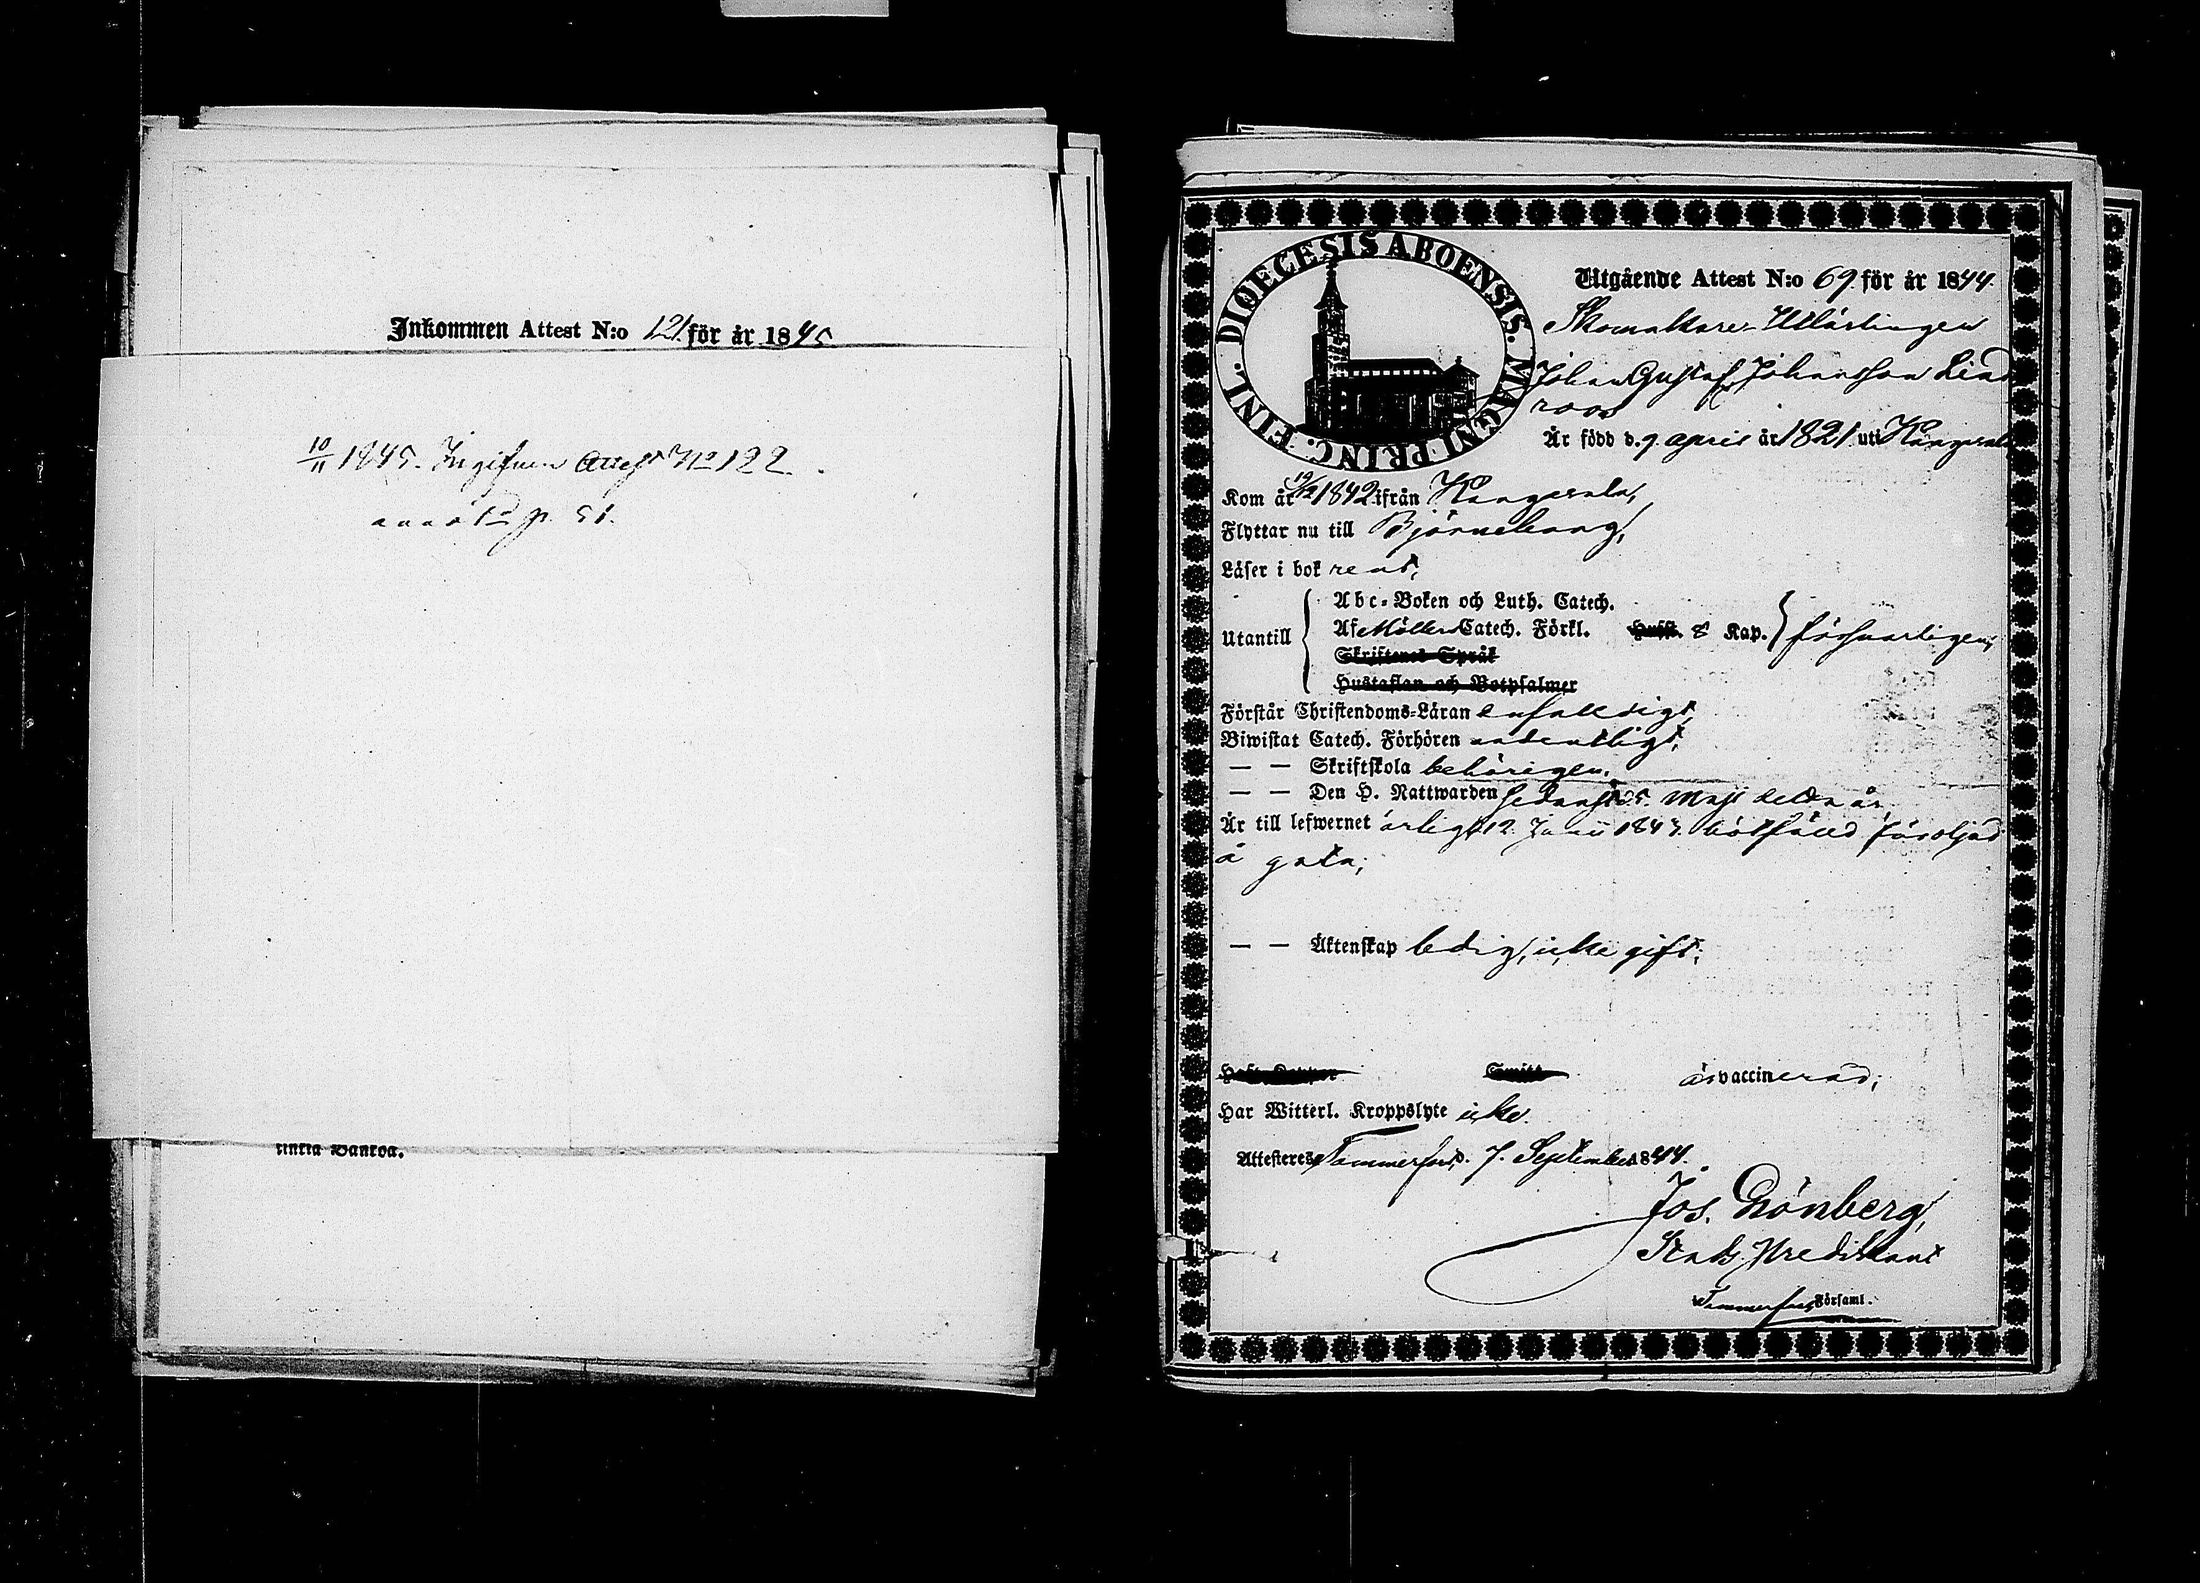 Inkommen Attest N:o 121 för år 1845
10/11 1845. Ingifven Attest No 122.
p. 51.
tinkia Dankoa.
DIOECESIS ABOENSIS. MAGNI PRINC. FINL.
Utgående Attest N:o 69 för år 1844.
Skomakare-Utlärlingen
Johan Gustaf Johansson Lind
roos
Är född d. 9 april år 1821 uti Kangasala
Kom år 19/12 1842 ifrån Kangasala,
Flyttar nu till Björneborg,
Läser i bok rent,
Utantill
Abc-Boken och Luth. Catech.
Af Möllers Catech. Förkl. Husst. 8 Kap. försvarligen,
Skriftenes Språk
Hustaflan och Botpsalmer
Förstår Christendoms-Läran enfaldigt,
Biwistat Catech. Förhören ordentligt,
— — Skriftskola behörigen.
— — Den H. Nattwarden sednast 25. Maji detta år
Är till lefwernet ärligt, 12 Junii 1843 botfälld för oljud
å gata;
— — Äktenskap ledig, icke gift;
Haft Koppor Smitt är vaccinerad;
Har Witterl. Kroppslyte icke.
Attesteres Tammerfors d. 7. September 1844.
Jos. Grönberg,
Stads Predikant
Tammerfors Församl.